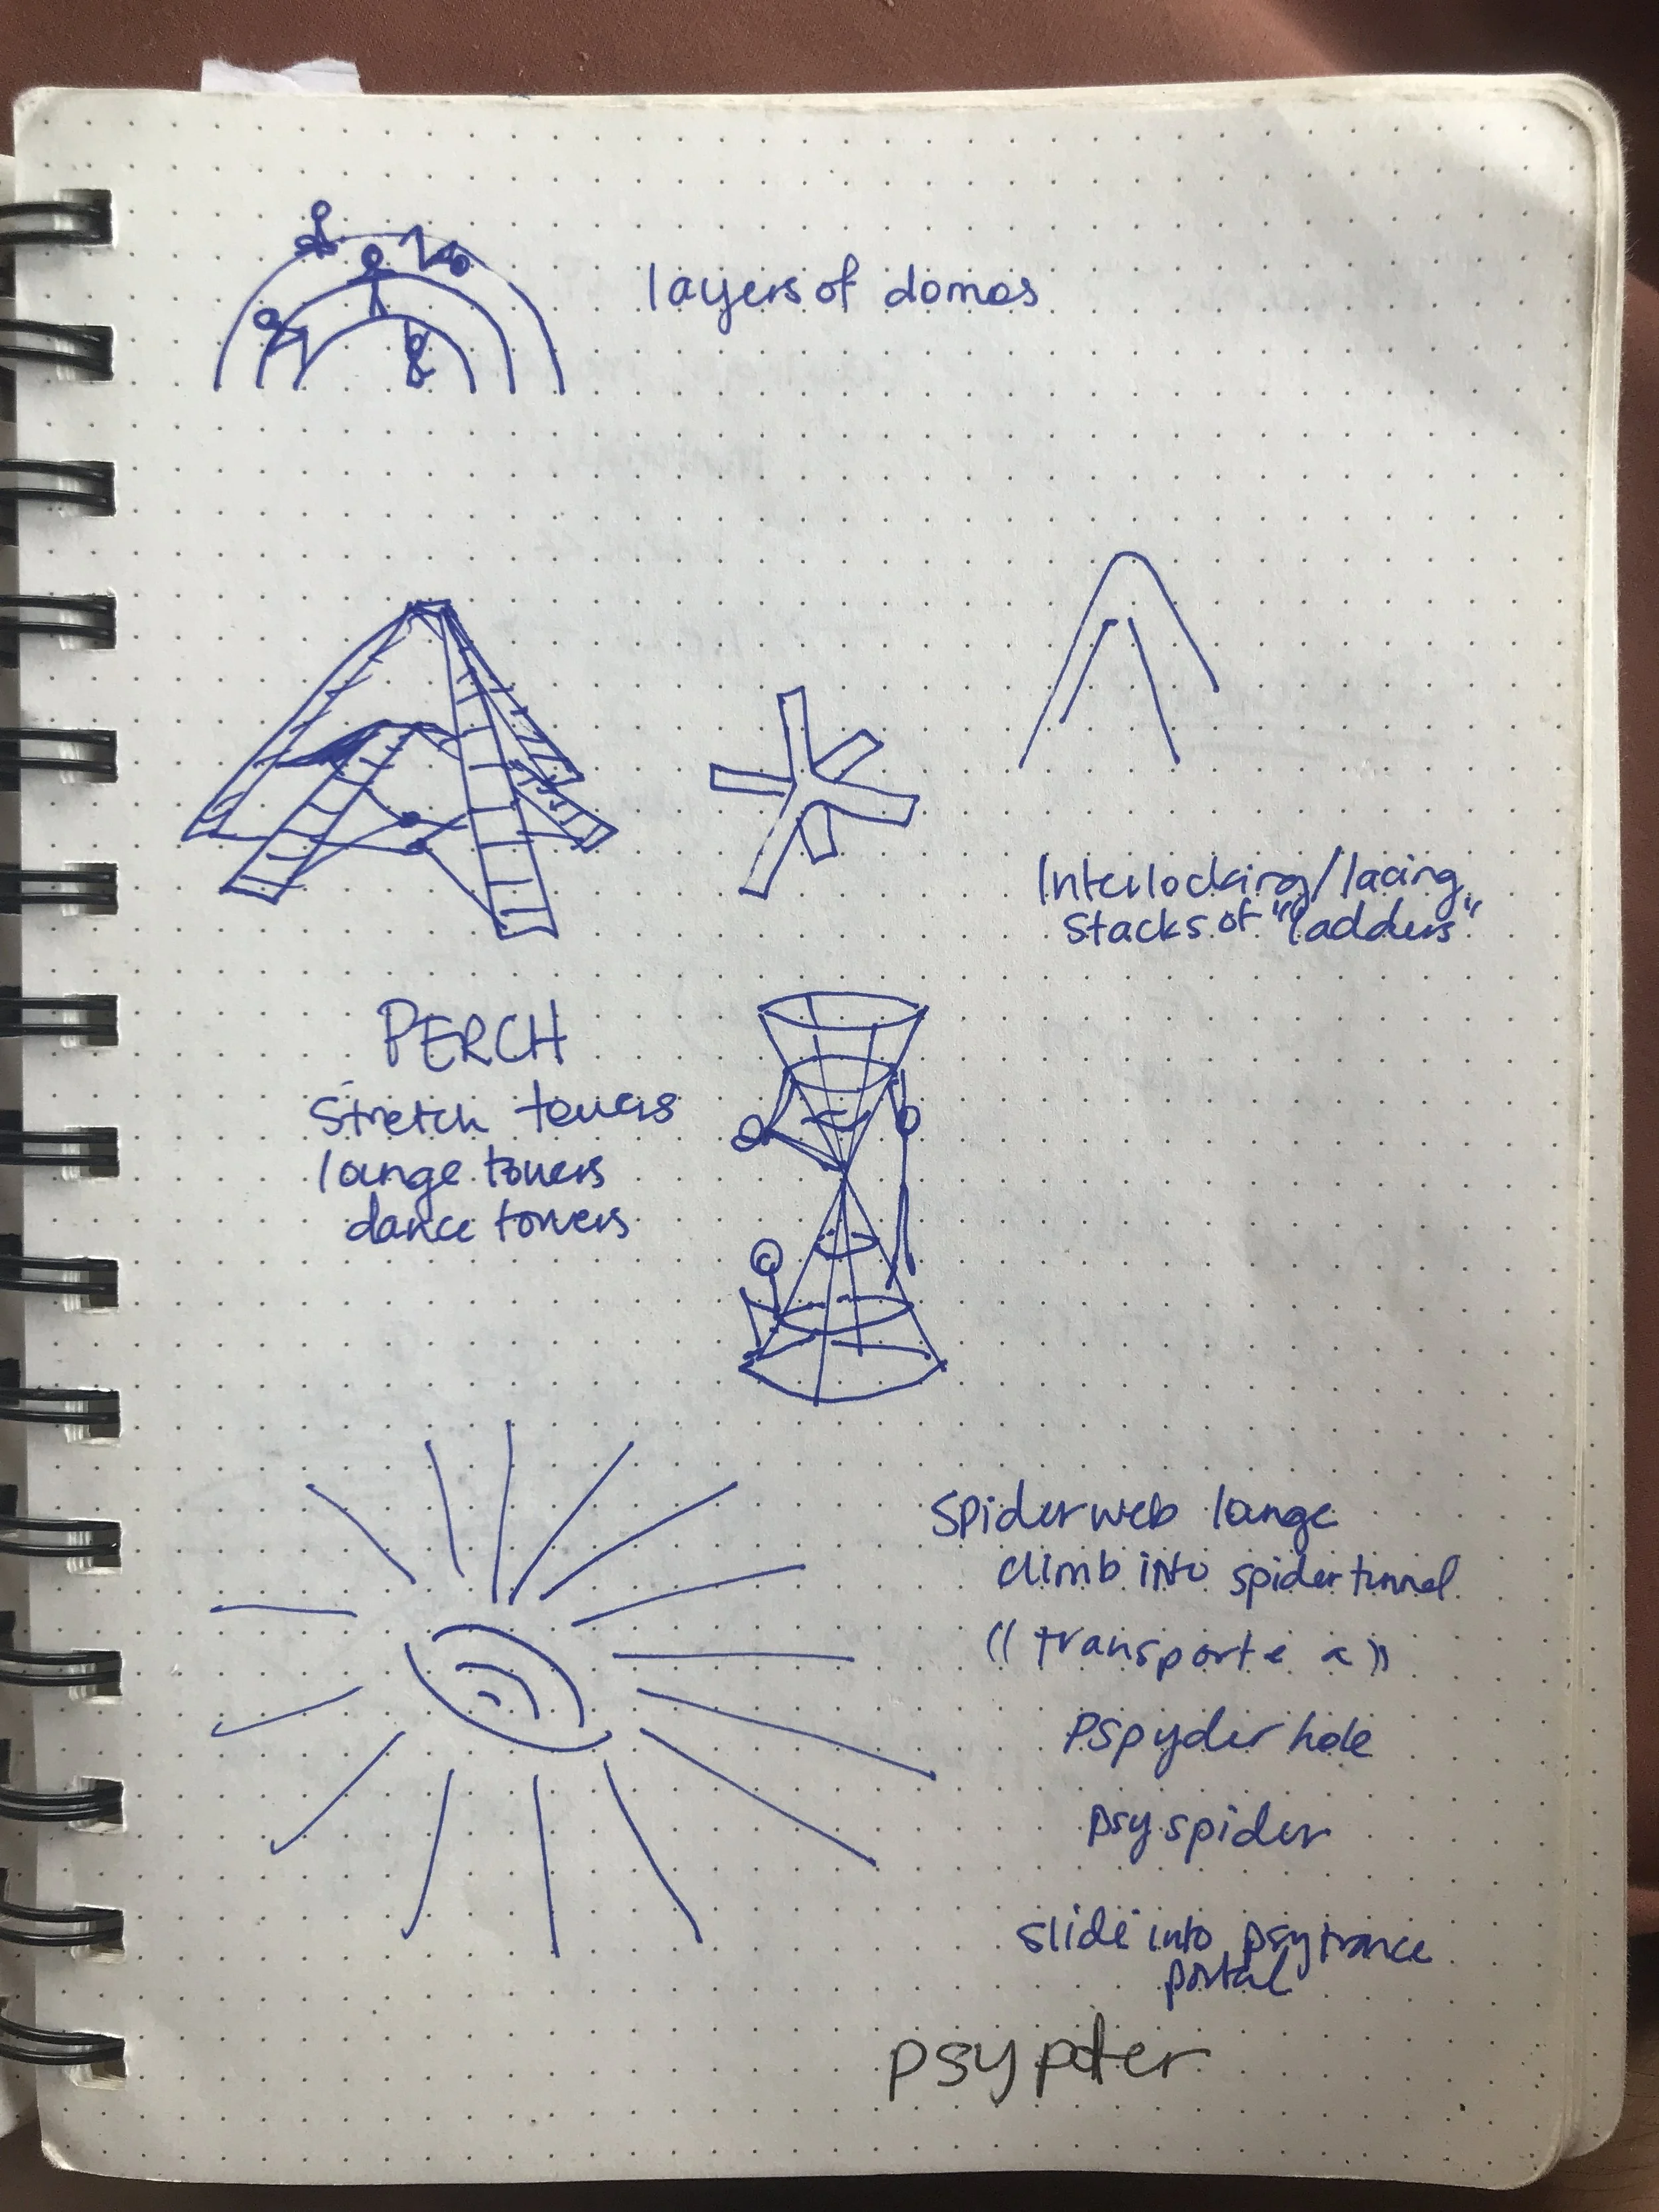 layers of domes
Interlocking/lacing
stacks of "ladders"
PERCH
stretch towers
lounge towers
dance towers
spiderweb lounge
climb into spider tunnel
(( transporte a ))
pspyder hole
psyspider
slide into psytrance
portal